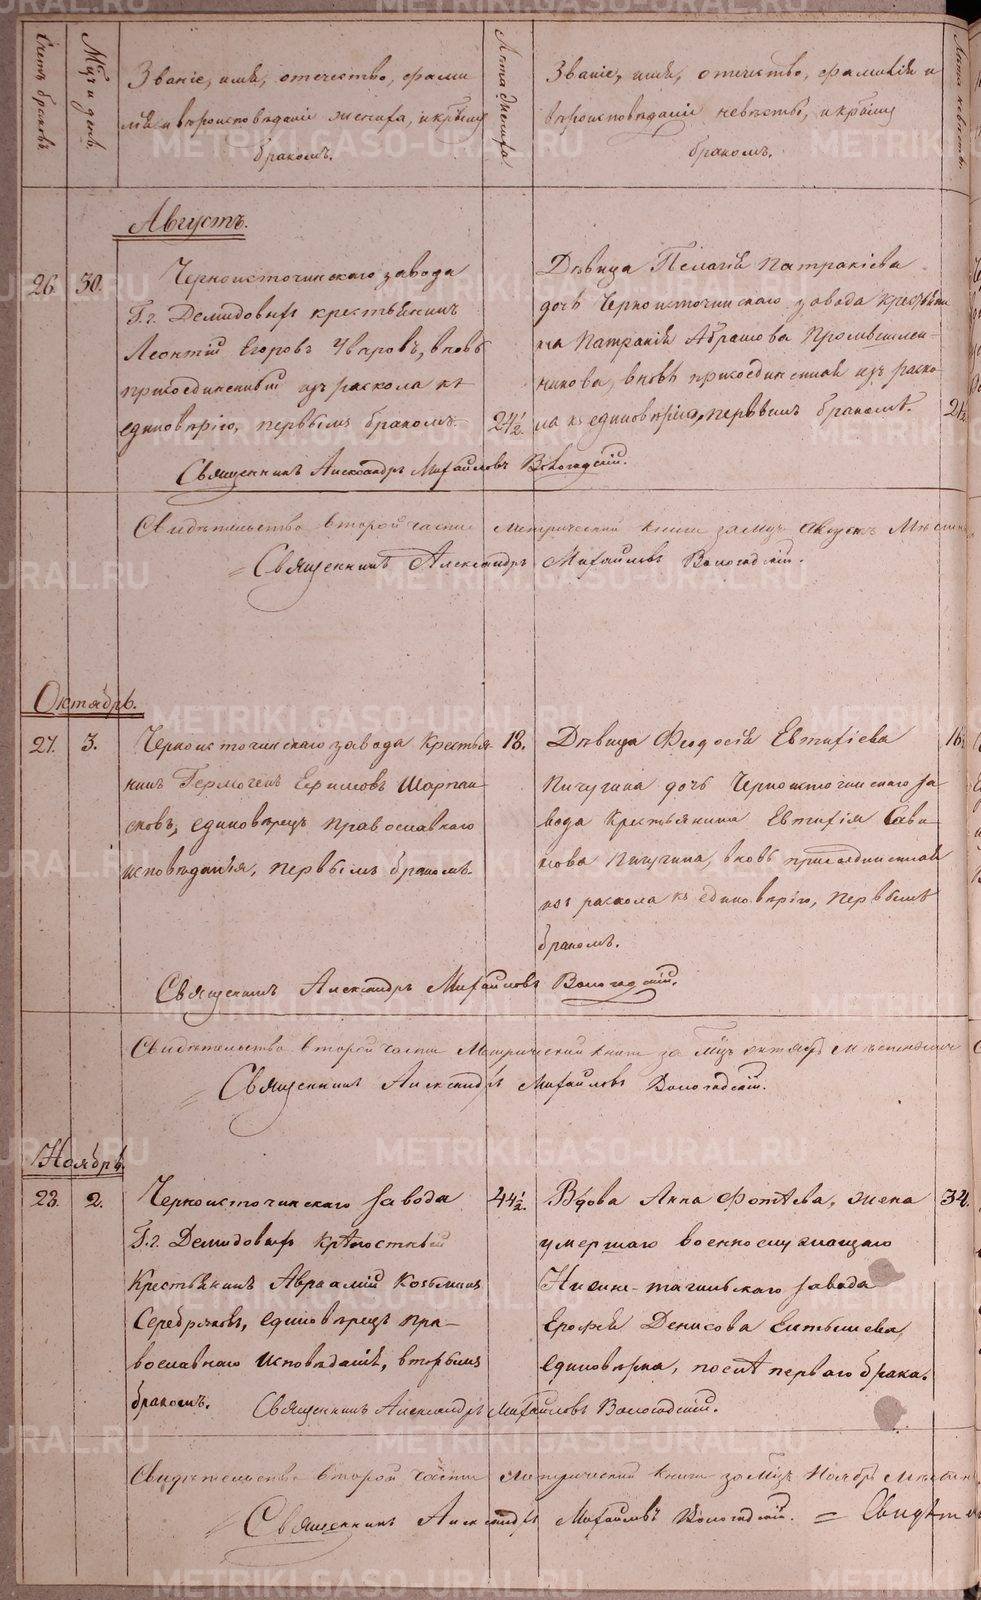 Счетъ браковъ
Мцъ и день.
Званіе, имя, отечество, фами
лія и вѣроисповѣданіе жениха, и кѣмъ
бракомъ.
Лѣта жениха
Званіе, имя, отечество, фамилія и
вѣроисповѣданіе невѣсты, и кѣмъ
бракомъ.
Лѣта невѣсты.
Августъ.
26. 30.
Черноисточинскаго завода
Г.г. Демидовыхъ крестьянинъ
Леонтій Егоровъ Уваровъ, вновь
присоединенный изъ раскола къ
единовѣрію, первымъ бракомъ.
24½.
Дѣвица Пелагія Патракіева
дочь Черноисточинскаго завода крестьяни
на Патракія Абрамова Промышлен-
никова, вновь присоединенная изъ раско-
ла къ единовѣрію, первымъ бракомъ.
21½
Священникъ Александръ Михайловъ Вологодскій.
Свидѣтельство второй части метрической книги за мцъ Августъ
Священникъ Александръ Михайловъ Вологодскій.
Октябрь.
27. 3.
Черноисточинскаго завода крестья
нинъ Гермогенъ Ефимовъ
единовѣрецъ православнаго
исповѣданія, первымъ бракомъ.
18.
Дѣвица Феодосія Евтихіева
Пичугина дочь Черноисточинскаго за
вода крестьянина Евтихія Сави
нова Пичугина, вновь присоединенная
изъ раскола къ единовѣрію, первымъ
бракомъ.
16
Священникъ Александръ Михайловъ Вологодскій.
Свидѣтельство второй части Метрической книги за Мцъ октябрь
Священникъ Александръ Михайловъ Вологодскій.
Ноябрь.
23. 2.
Черноисточинскаго завода
Г.г. Демидовыхъ крѣпостный
крестьянинъ Авраамій Козьминъ
Серебряковъ, единовѣрецъ пра-
вославнаго исповѣданія, вторымъ
бракомъ.
44½.
Вдова Анна Фотѣева, жена
умершаго военнослужащаго
Нижне-тагильскаго завода
Ерофея Денисова
единовѣрка, послѣ перваго брака.
34.
Священникъ Александръ Михайловъ Вологодскій.
Свидѣтельство второй части метрической книги за Мцъ Ноябрь
Священникъ Александръ Михайловъ Вологодскій. =
METRIKI.GASO-URAL.RU